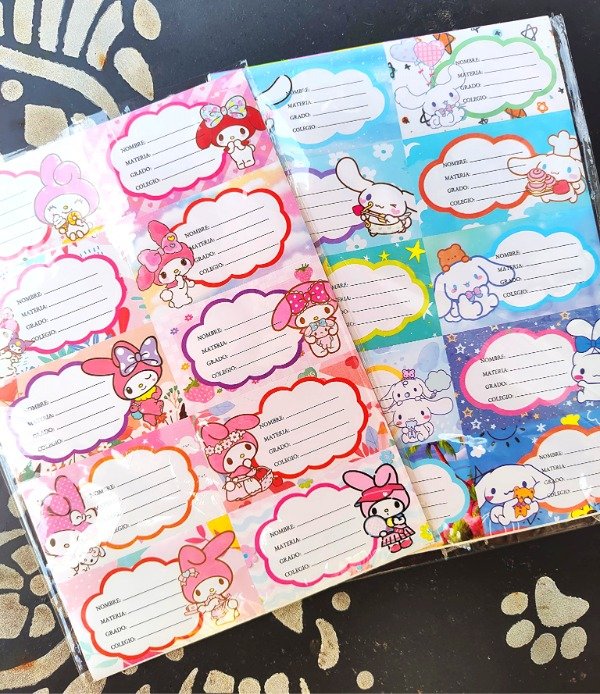 NOMBRE:
MATERIA:
GRADO:
COLEGIO:
NOMBRE:
MATERIA:
GRADO:
COLEGIO:
NOMBRE:
MATERIA:
GRADO:
COLEGIO:
NOMBRE:
MATERIA:
GRADO:
COLEGIO:
NOMBRE:
MATERIA:
GRADO:
COLEGIO:
NOMBRE:
MATERIA:
GRADO:
COLEGIO:
NOMBRE:
MATERIA:
GRADO:
COLEGIO:
NOMBRE:
MATERIA:
GRADO:
COLEGIO:
NOMBRE:
MATERIA:
GRADO:
COLEGIO:
NOMBRE:
MATERIA:
GRADO:
COLEGIO:
NOMBRE:
MATERIA:
GRADO:
COLEGIO:
NOMBRE:
MATERIA:
GRADO:
COLEGIO:
NOMBRE:
MATERIA:
GRADO:
COLEGIO:
NOMBRE:
MATERIA:
GRADO:
COLEGIO:
NOMBRE:
MATERIA:
GRADO:
COLEGIO: